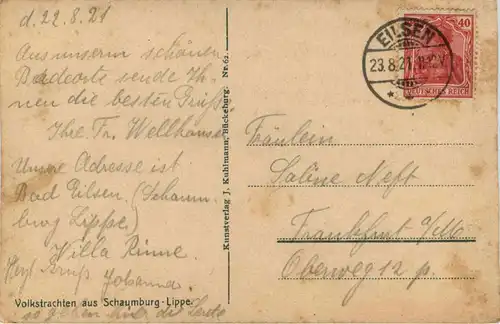 d. 22.8.21
Aus unserm schönen
Badeorte sende Ih-
nen die besten Grüße
Ihre Fr. Wellhausen
Unsere Adresse ist
Bad Eilsen. (Schaum-
burg Lippe.)
Villa Rinne.
Herzl. Gruß Johanna.
so gehen hier die Leute
Volkstrachten aus Schaumburg-Lippe.
Kunstverlag J. Kuhlmann, Bückeburg. Nr. 62.
EILSEN
23.8.21
40
DEUTSCHES REICH
Fräulein
Saline Neft
Frankfurt a/M.
Oberweg 12 p.